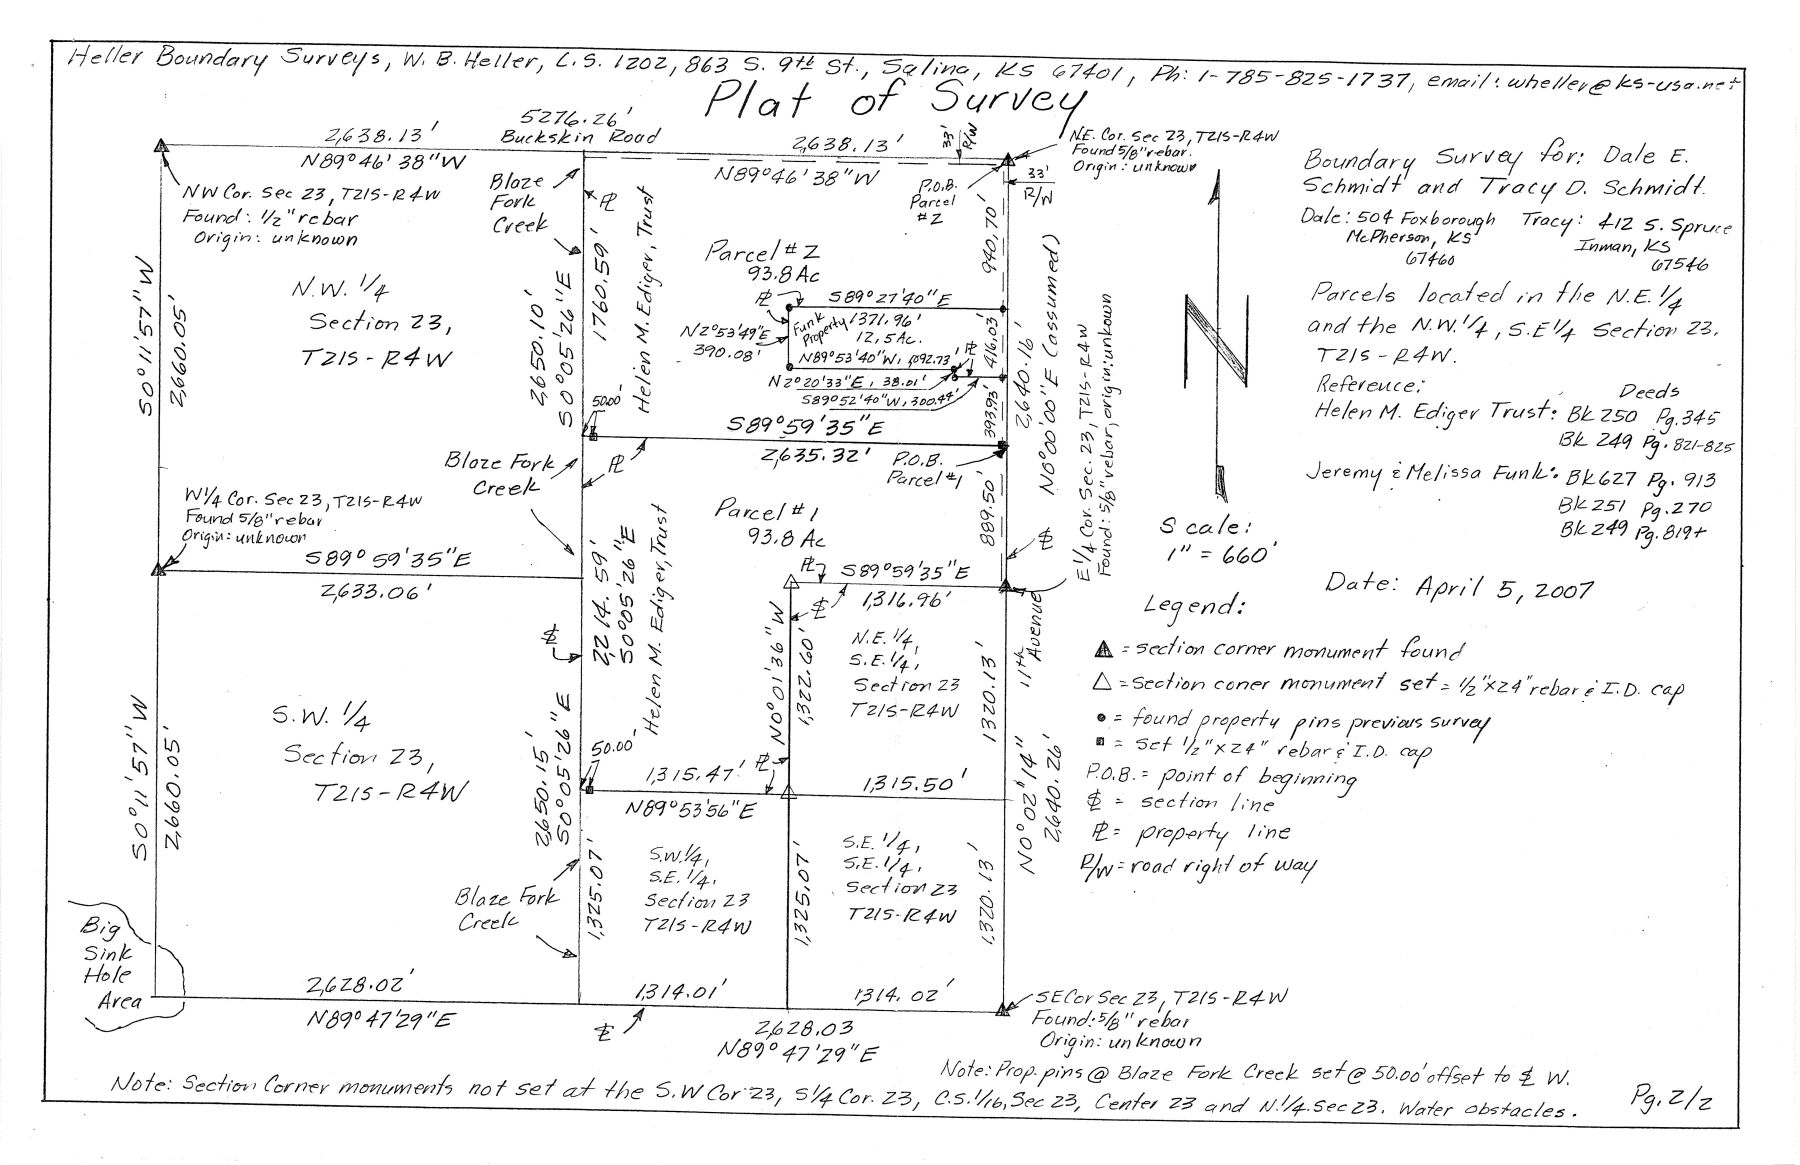 Heller Boundary Surveys, W. B. Heller, L.S. 1202, 863 S. 9th St., Salina, KS 67401, Ph: 1-785-825-1737, email: wheller@ks-usa.net
Plat of Survey
5276.26'
2,638.13'
Buckskin Road
2,638.13'
33'
R/W
N89°46'38"W
N89°46'38"W
N.E. Cor. Sec 23, T21S-R4W
Found 5/8" rebar.
Origin: unknown
NW Cor. Sec 23, T21S-R4W
Found: 1/2" rebar
Origin: unknown
Blaze
Fork
Creek
PL
P.O.B.
Parcel
#2
33'
R/W
Boundary Survey for: Dale E.
Schmidt and Tracy D. Schmidt.
Dale: 504 Foxborough
McPherson, KS
67460
Tracy: 412 S. Spruce
Inman, KS
67546
Parcels located in the N.E. 1/4
and the N.W. 1/4, S.E 1/4 Section 23.
T21S-R4W.
Reference:
Deeds
Helen M. Ediger Trust: Bk 250 Pg. 345
Bk 249 Pg. 821-825
Jeremy & Melissa Funk: Bk 627 Pg. 913
Bk 251 Pg. 270
Bk 249 Pg. 819+
N
Scale:
1" = 660'
Date: April 5, 2007
S0°11'57"W
2,660.05'
N.W. 1/4
Section 23,
T21S-R4W
2,650.10'
S0°05'26"E
1760.59'
Helen M. Ediger, Trust
Parcel #2
93.8 Ac
PL
S89°27'40"E
Funk
Property
1371.96'
12.5 Ac.
N2°53'49"E
390.08'
N89°53'40"W, 1092.73'
PL
N2°20'33"E, 38.01'
S89°52'40"W, 300.44'
940.70'
416.03'
393.93'
2,640.16'
N0°00'00"E (assumed)
50.00'
S89°59'35"E
2,635.32'
PL
P.O.B.
Parcel #1
Blaze Fork
Creek
889.50'
SL
E 1/4 Cor. Sec. 23, T21S-R4W
Found: 5/8" rebar, origin: unkown
W 1/4 Cor. Sec 23, T21S-R4W
Found 5/8" rebar
Origin: unknown
S89°59'35"E
2,633.06'
Parcel #1
93.8 Ac
PL
S89°59'35"E
1,316.96'
SL
2,214.59'
S0°05'26"E
Helen M. Ediger, Trust
SL
N0°01'36"W
1,322.60'
N.E. 1/4,
S.E. 1/4,
Section 23
T21S-R4W
1320.13'
11th Avenue
Legend:
▲ = section corner monument found
△ = section coner monument set = 1/2"x24" rebar & I.D. cap
● = found property pins previous survey
■ = set 1/2"x24" rebar & I.D. cap
P.O.B. = point of beginning
SL = section line
PL = property line
R/W = road right of way
S0°11'57"W
2,660.05'
S.W. 1/4
Section 23,
T21S-R4W
2,650.15'
S0°05'26"E
50.00'
1,315.47'
PL
1,315.50'
N89°53'56"E
N0°02'14"
2,640.26'
Blaze Fork
Creek
1,325.07'
S.W. 1/4,
S.E. 1/4,
Section 23
T21S-R4W
1,325.07'
S.E. 1/4,
S.E. 1/4,
Section 23
T21S-R4W
1,320.13'
Big
Sink
Hole
Area
2,628.02'
N89°47'29"E
1,314.01'
1314.02'
SL
2,628.03
N89°47'29"E
SE Cor Sec 23, T21S-R4W
Found: 5/8" rebar
Origin: unknown
Note: Prop. pins @ Blaze Fork Creek set @ 50.00' offset to SL W.
Note: Section Corner monuments not set at the S.W Cor 23, S1/4 Cor. 23, C.S. 1/16, Sec 23, Center 23 and N. 1/4. Sec 23. Water obstacles.
Pg. 2/2